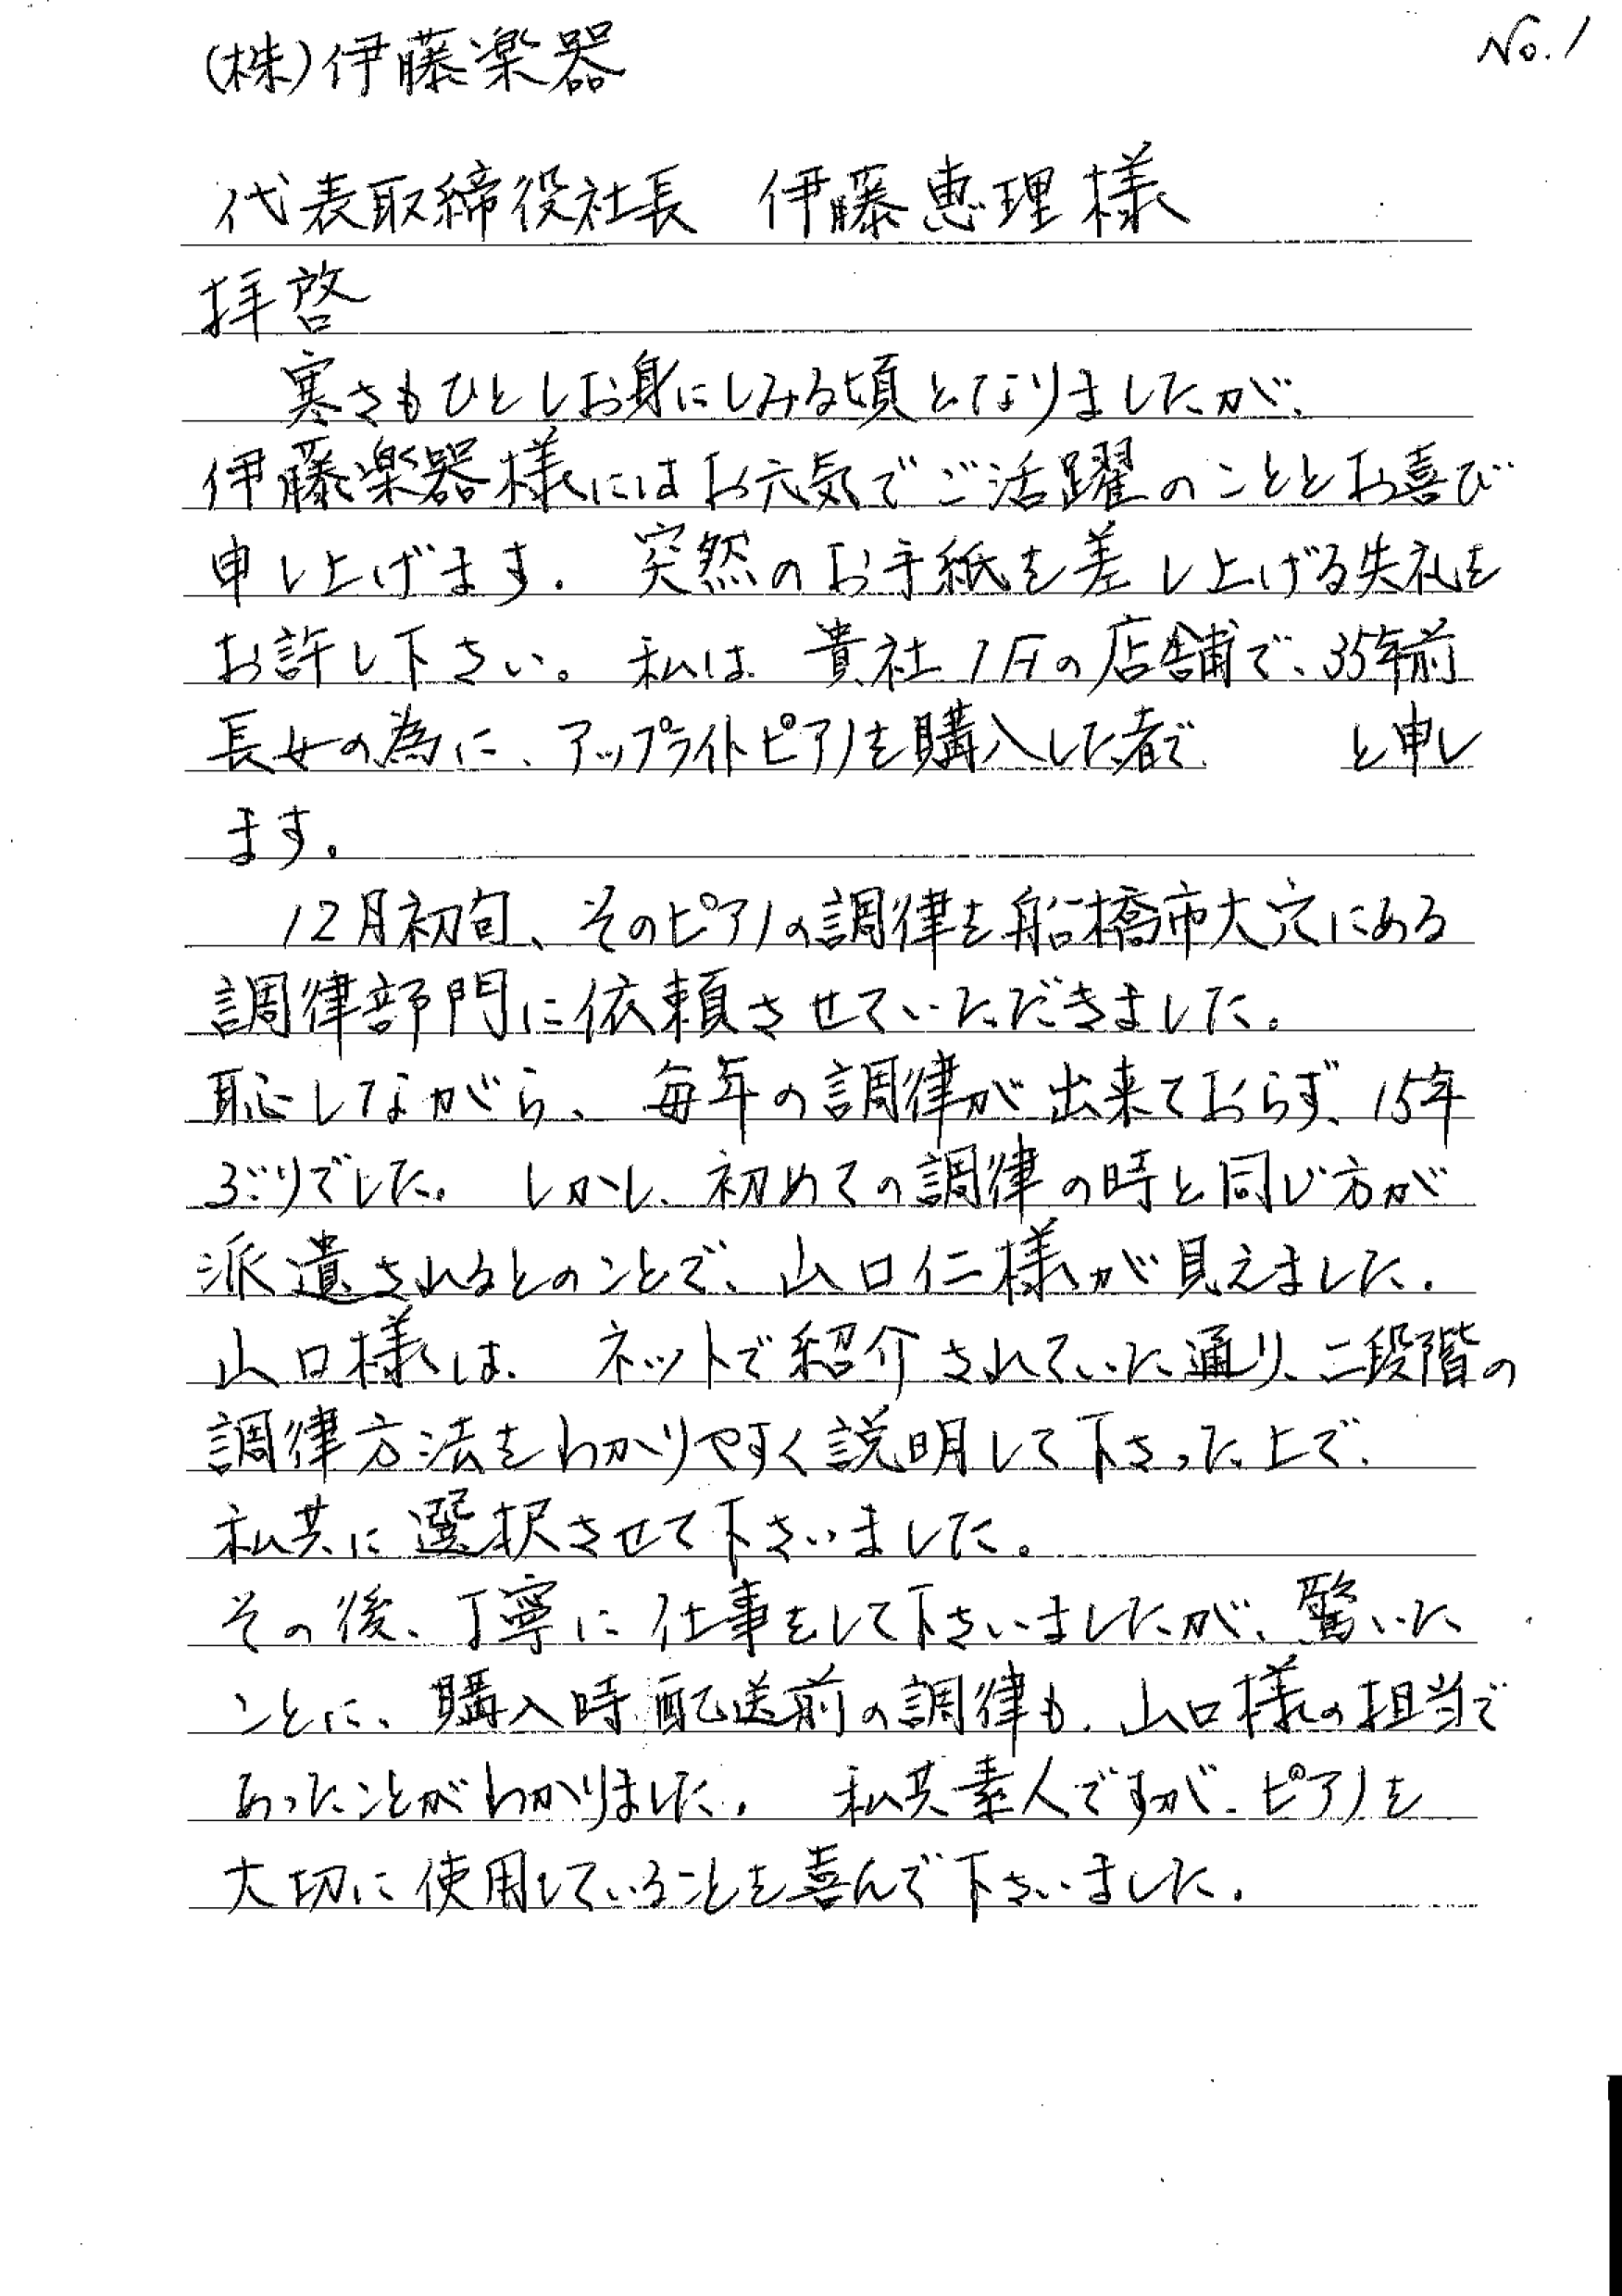 No.1
(株)伊藤楽器
代表取締役社長 伊藤恵理様
拝啓
寒さもひとしお身にしみる頃となりましたが、
伊藤楽器様にはお元気でご活躍のこととお喜び
申し上げます。突然のお手紙を差し上げる失礼を
お許し下さい。私は、貴社1Fの店舗で、35年前
長女の為に、アップライトピアノを購入した者で、 と申し
ます。
12月初旬、そのピアノの調律を船橋市大穴にある
調律部門に依頼させていただきました。
恥しながら、毎年の調律が出来ておらず、15年
ぶりでした。しかし、初めての調律の時と同じ方が
派遣されるとのことで、山口仁様が見えました。
山口様は、ネットで紹介されていた通り、二段階の
調律方法をわかりやすく説明して下さった上で、
私共に選択させて下さいました。
その後、丁寧に仕事をして下さいましたが、驚いた
ことに、購入時配送前の調律も、山口様の担当で
あったことがわかりました。私共素人ですが、ピアノを
大切に使用していることを喜んで下さいました。